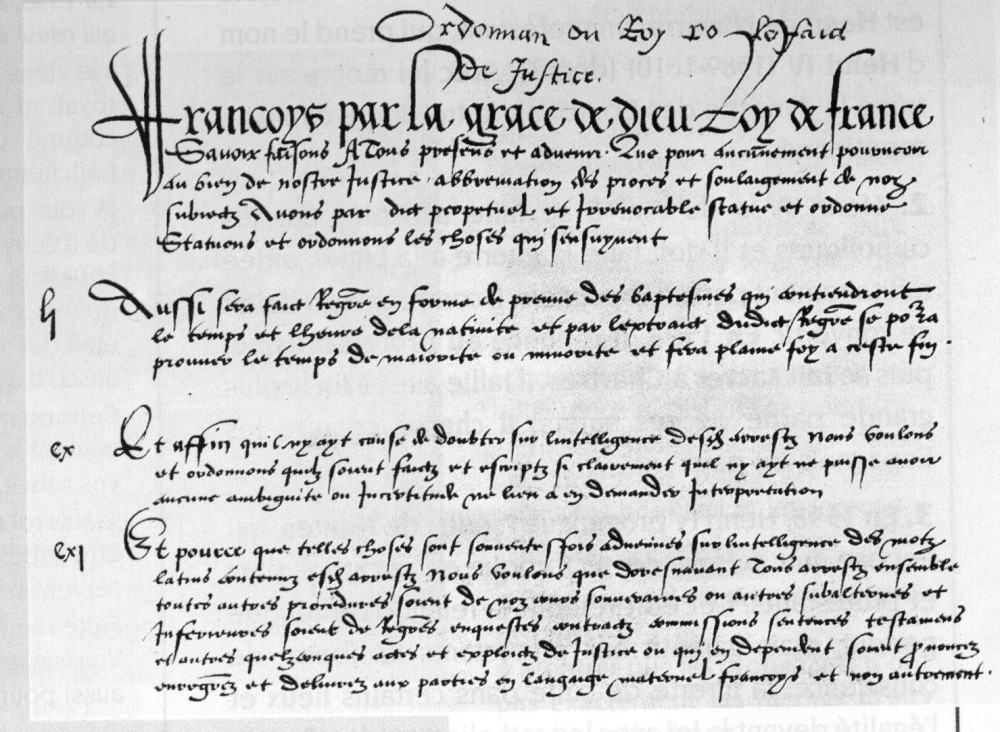 Ordonnan du Roy po le faid
De Justice.
Francoys par la grace de dieu Roy de france
Savoir faisons A Tous presens et advenir. Que pour aucunement pourveoir
au bien de nostre Justice, abbreviation des proces et soulaigement de noz
subiectz Avons par edict perpetuel et Irrevocable statue et ordonne
Statuons et ordonnons les choses qui sensuyvent
li Aussi sera faict Regre en forme de preuve des baptesmes qui contiendront
le temps et lheure dela nativite et par lextraict dudict Regre se pourra
prouver le temps de maiorite ou minorite et fera plaine foy a ceste fin.
cx Et affin quil ny ayt cause de doubter sur lintelligence desd arrestz Nous voulons
et ordonnons quilz soient faictz et escriptz si clairement quil ny ayt ne puisse avoir
aucune ambiguite ou Incertitude ne lieu a en demander Interpretation
cxi Et pource que telles choses sont souventesfois advenues sur lintelligence des motz
latins contenuz esd arrestz Nous voulons que doresnavant Tous arrestz ensemble
toutes autres procedures soient de noz cours souveraines ou autres subalternes et
Inferieures soient de Regres enquestes contractz commissions sentences testamens
et autres quelzconques actes et exploictz de Justice ou qui en dependent soient pnoncez
enregrez et delivrez aux parties en langaige maternel francoys et non autrement.